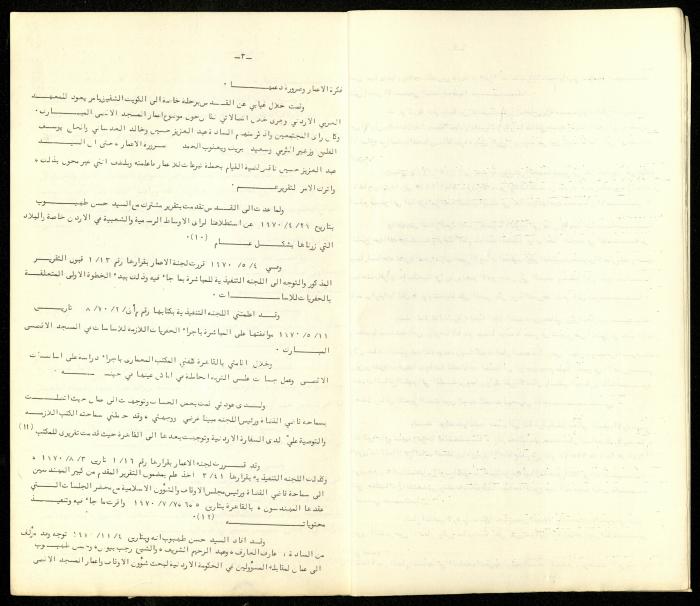 ـ ٣ ـ
فكرة الاعمار وضرورة دعمها ٠
وتمت خلال غيابي عن القدس برحلة خاصة الى الكويت
العربي الاردني وجرى خلال اتصالاتي نقاش حول موضوع اعمار المسجد الاقصى المبارك ٠
وكان رأى المجتمعين واكثرهم السادة عبد العزيز حسين وخالد العدساني يوسف
سعيد ويعقوب الحمد ضرورة الاعمار حتى ان السيد
عبد العزيز حسين ناقش القيام بحملة تبرعات للاعمار
ولما عدت الى القدس تقدمت بتقرير مشترك من السيد حسن طهبوب
بتاريخ ٢٩ /٤/ ١٩٧٠ عن استطلاعنا لرأى الاوساط الرسمية والشعبية في الاردن خاصة والبلاد
التي زرناها بشكل عام (١٠)٠
وفي ٤ /٥/ ١٩٧٠ قررت لجنة الاعمار بقرارها رقم ١/١٣ قبول التقرير
المذكور والتوجه الى اللجنة التنفيذية للمباشرة بما جاء فيه وذلك ببدء الخطوة الاولى المتعلقة
بالحفريات للاساسات ٠
وقد اعلمتني اللجنة التنفيذية بكتابها رقم ٨/٧٠/٢ تاريخ
١١ /٥/ ١٩٧٠ موافقتها على المباشرة باجراء الحفريات اللازمة للاساسات في المسجد الاقصى
المبارك ٠
وخلال اقامتي بالقاهرة المكتب المعماري باجراء دراسة على اساسات
الاقصى وعمل جسات على التربة الحاملة في اماكن عينها في حينه ٠
ولدى عودتي تمت بعض الجسات وتوجهت الى عمان حيث اتصلت
بسماحة قاضي القضاة ورئيس اللجنة مبينا غرضي ووجهتي ٠ وقد حملني سماحته الكتب اللازمة
والتوصية علي لدى السفارة الاردنية وتوجهت بعدها الى القاهرة حيث قدمت تقريري للمكتب (١١)
وقد قررت لجنة الاعمار بقرارها رقم ١/١٦ تاريخ ٣ /٨/ ١٩٧٠ ٠
وكذلك اللجنة التنفيذية بقرارها ٣/٤١ اخذ علم بمضمون التقرير المقدم من كبير المهندسين
الى سماحة قاضي القضاة ورئيس مجلس الاوقاف والشؤون الاسلامية من محضر الجلسات التي
عقدها المهندسون ٠ بالقاهرة بتاريخ ٥ ٦٥ /٧/٧ ١٩٧٠ واقرت ما جاء فيه وتنفيذ
محتوياته (١٢)٠
ولقد افاد السيد حسن طهبوب انه وبتاريخ ٤ /١١/ توجه وفد مؤلف
من السادة : عارف العارف ٠ وعبد الرحيم الشريف ٠ والشيخ رجب بيوض وحسن طهبوب
الى عمان لمقابلة المسؤولين في الحكومة الاردنية لبحث شؤون الاوقاف واعمار المسجد الاقصى